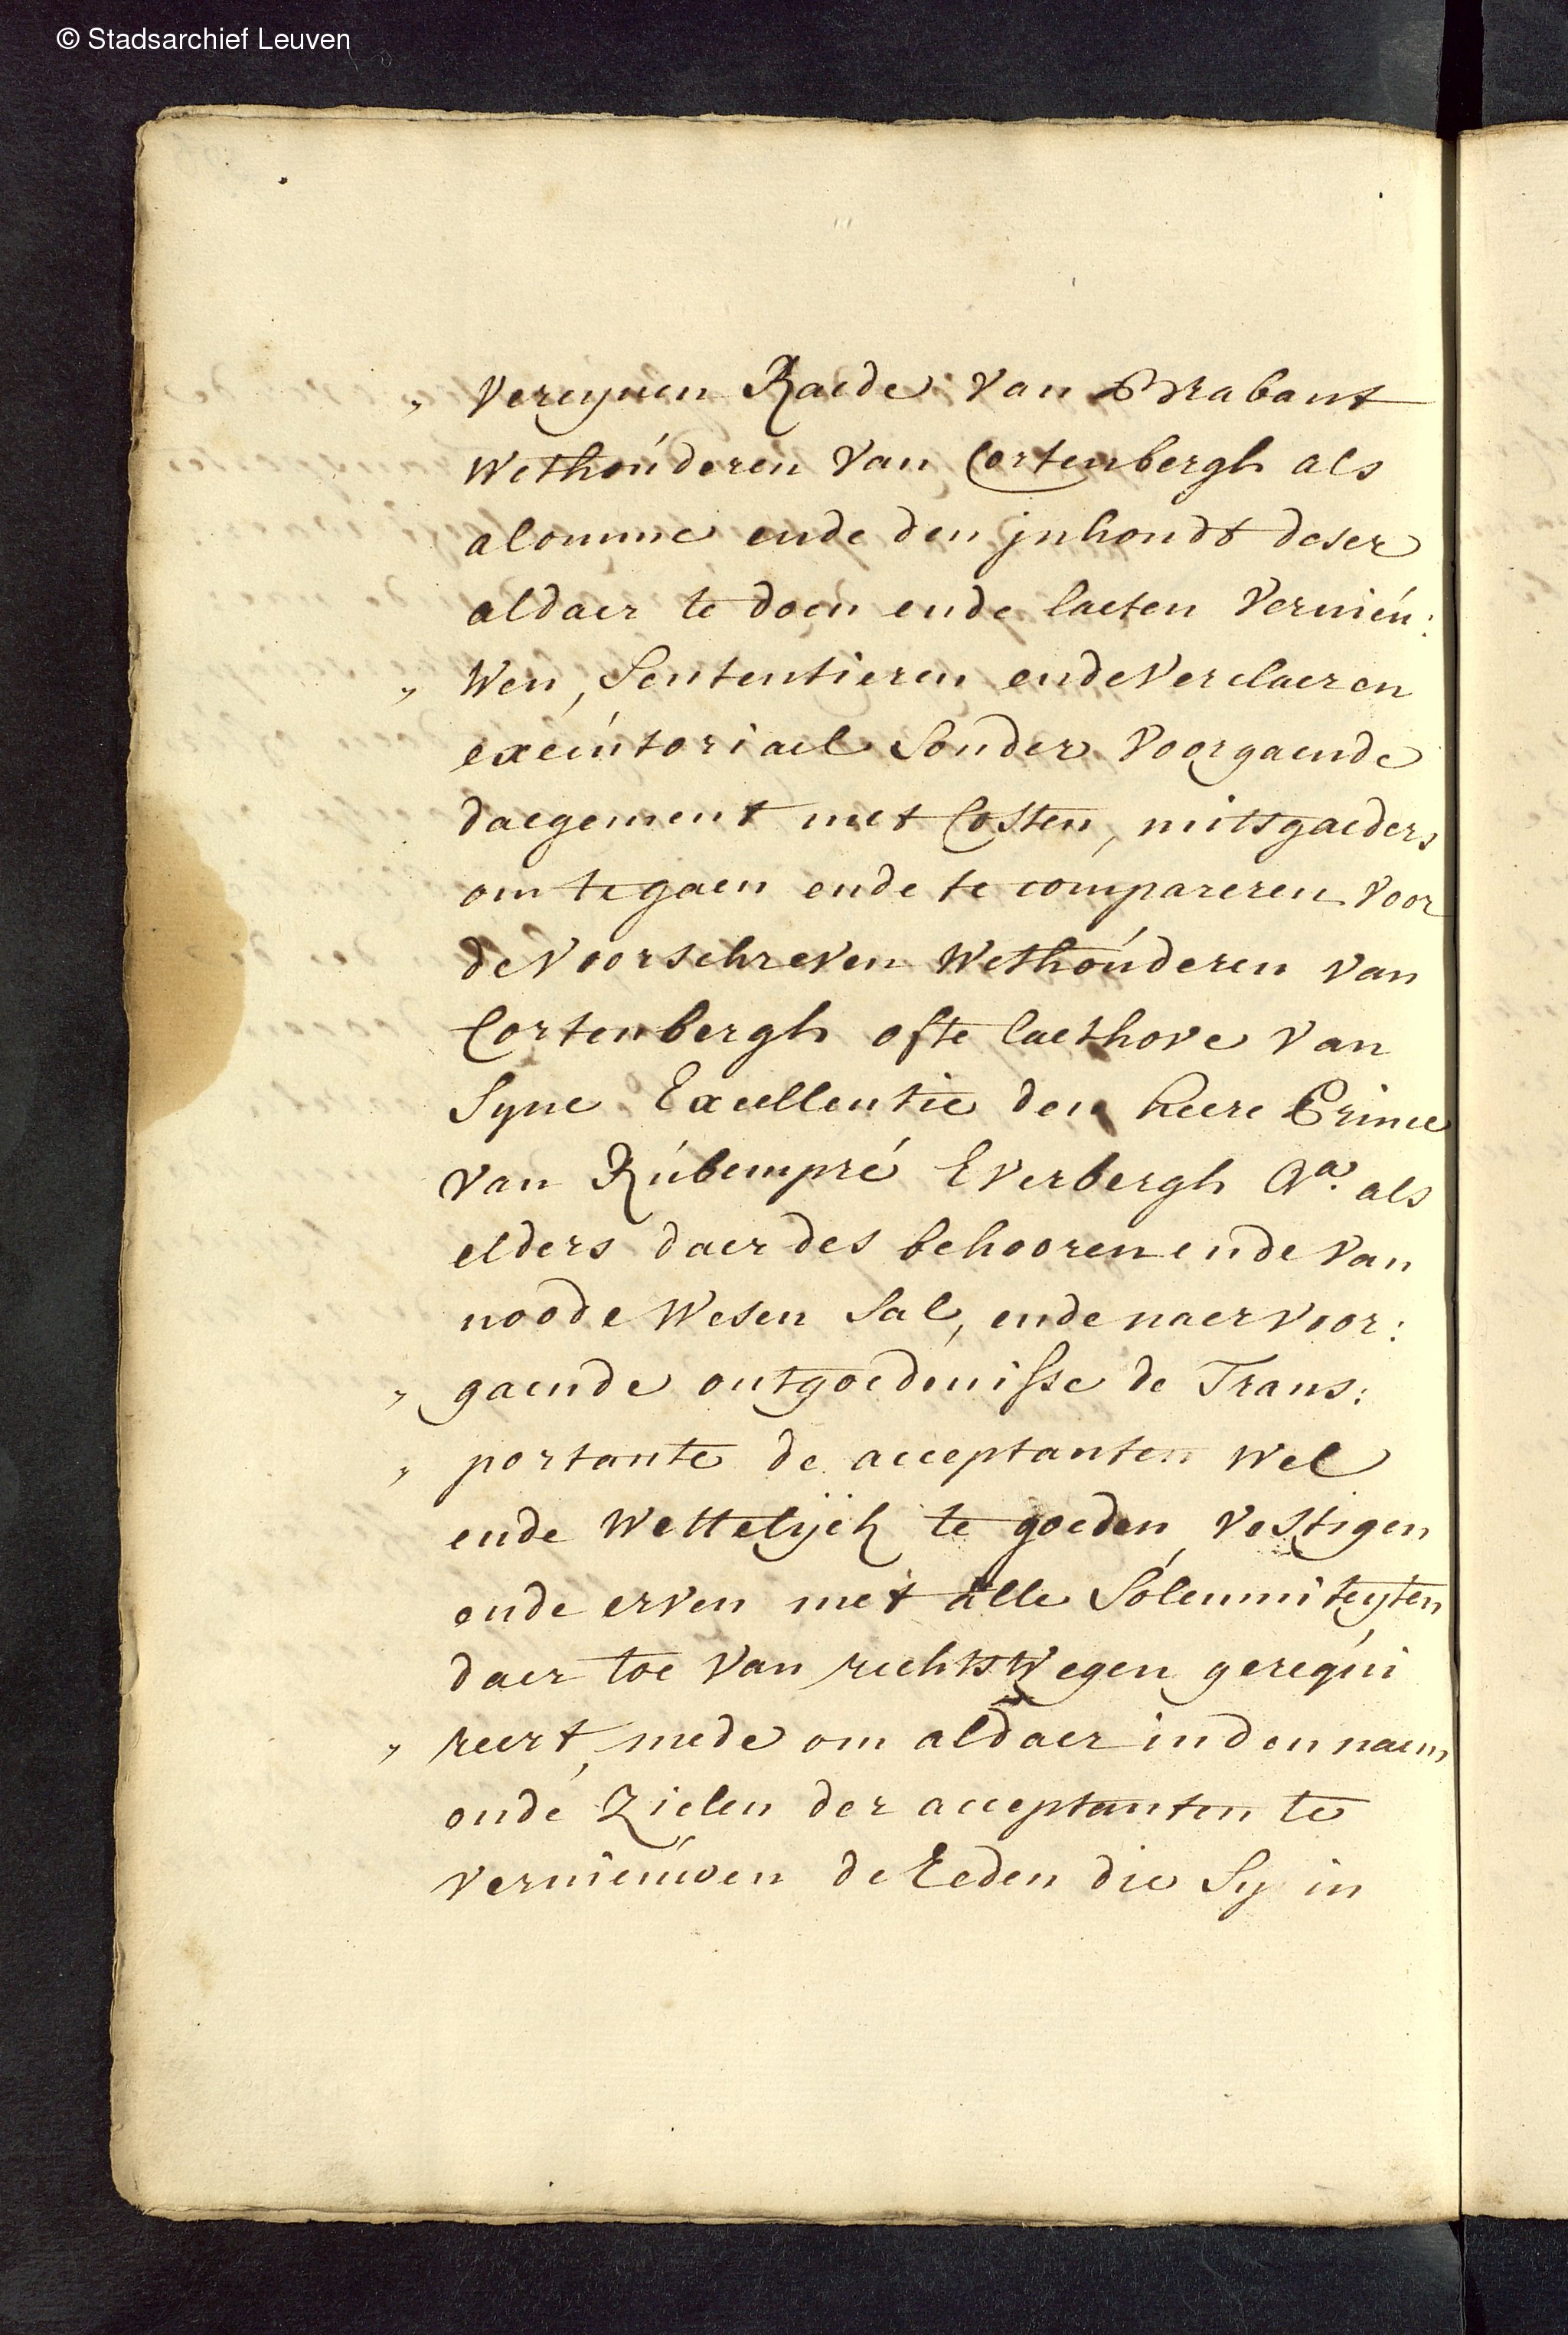 © Stadsarchief Leuven
„ Vereynen Raede van Brabant
Wethoúderen van Cortenbergh als
alomme ende den jnhoudt deser
aldaer te doen ende laeten Verniéu:
„ Wen, Sententieren ende Verclaeren
execútoriael Sonder voorgaende
daegement met Costen, mitsgaeders
om te gaen ende te compareren voor
de Voorschreven Wethoúderen van
Cortenbergh ofte laethove van
Syne Excellentie den heere Prince
van Rúbempré Everbergh &a. als
elders daer des behooren ende van
noode Wesen Sal, ende naer voor:
„ gaende ontgoedenisse de Trans:
„ portante de acceptanten Wel
ende Wettelijck te goeden, vestigen
ende erven met alle Solemniteyten
daer toe van rechts Wegen gereqúi
„ reert, mede om aldaer in den naem
ende Zielen der acceptanten te
verniéuwen de Eeden die Sy in